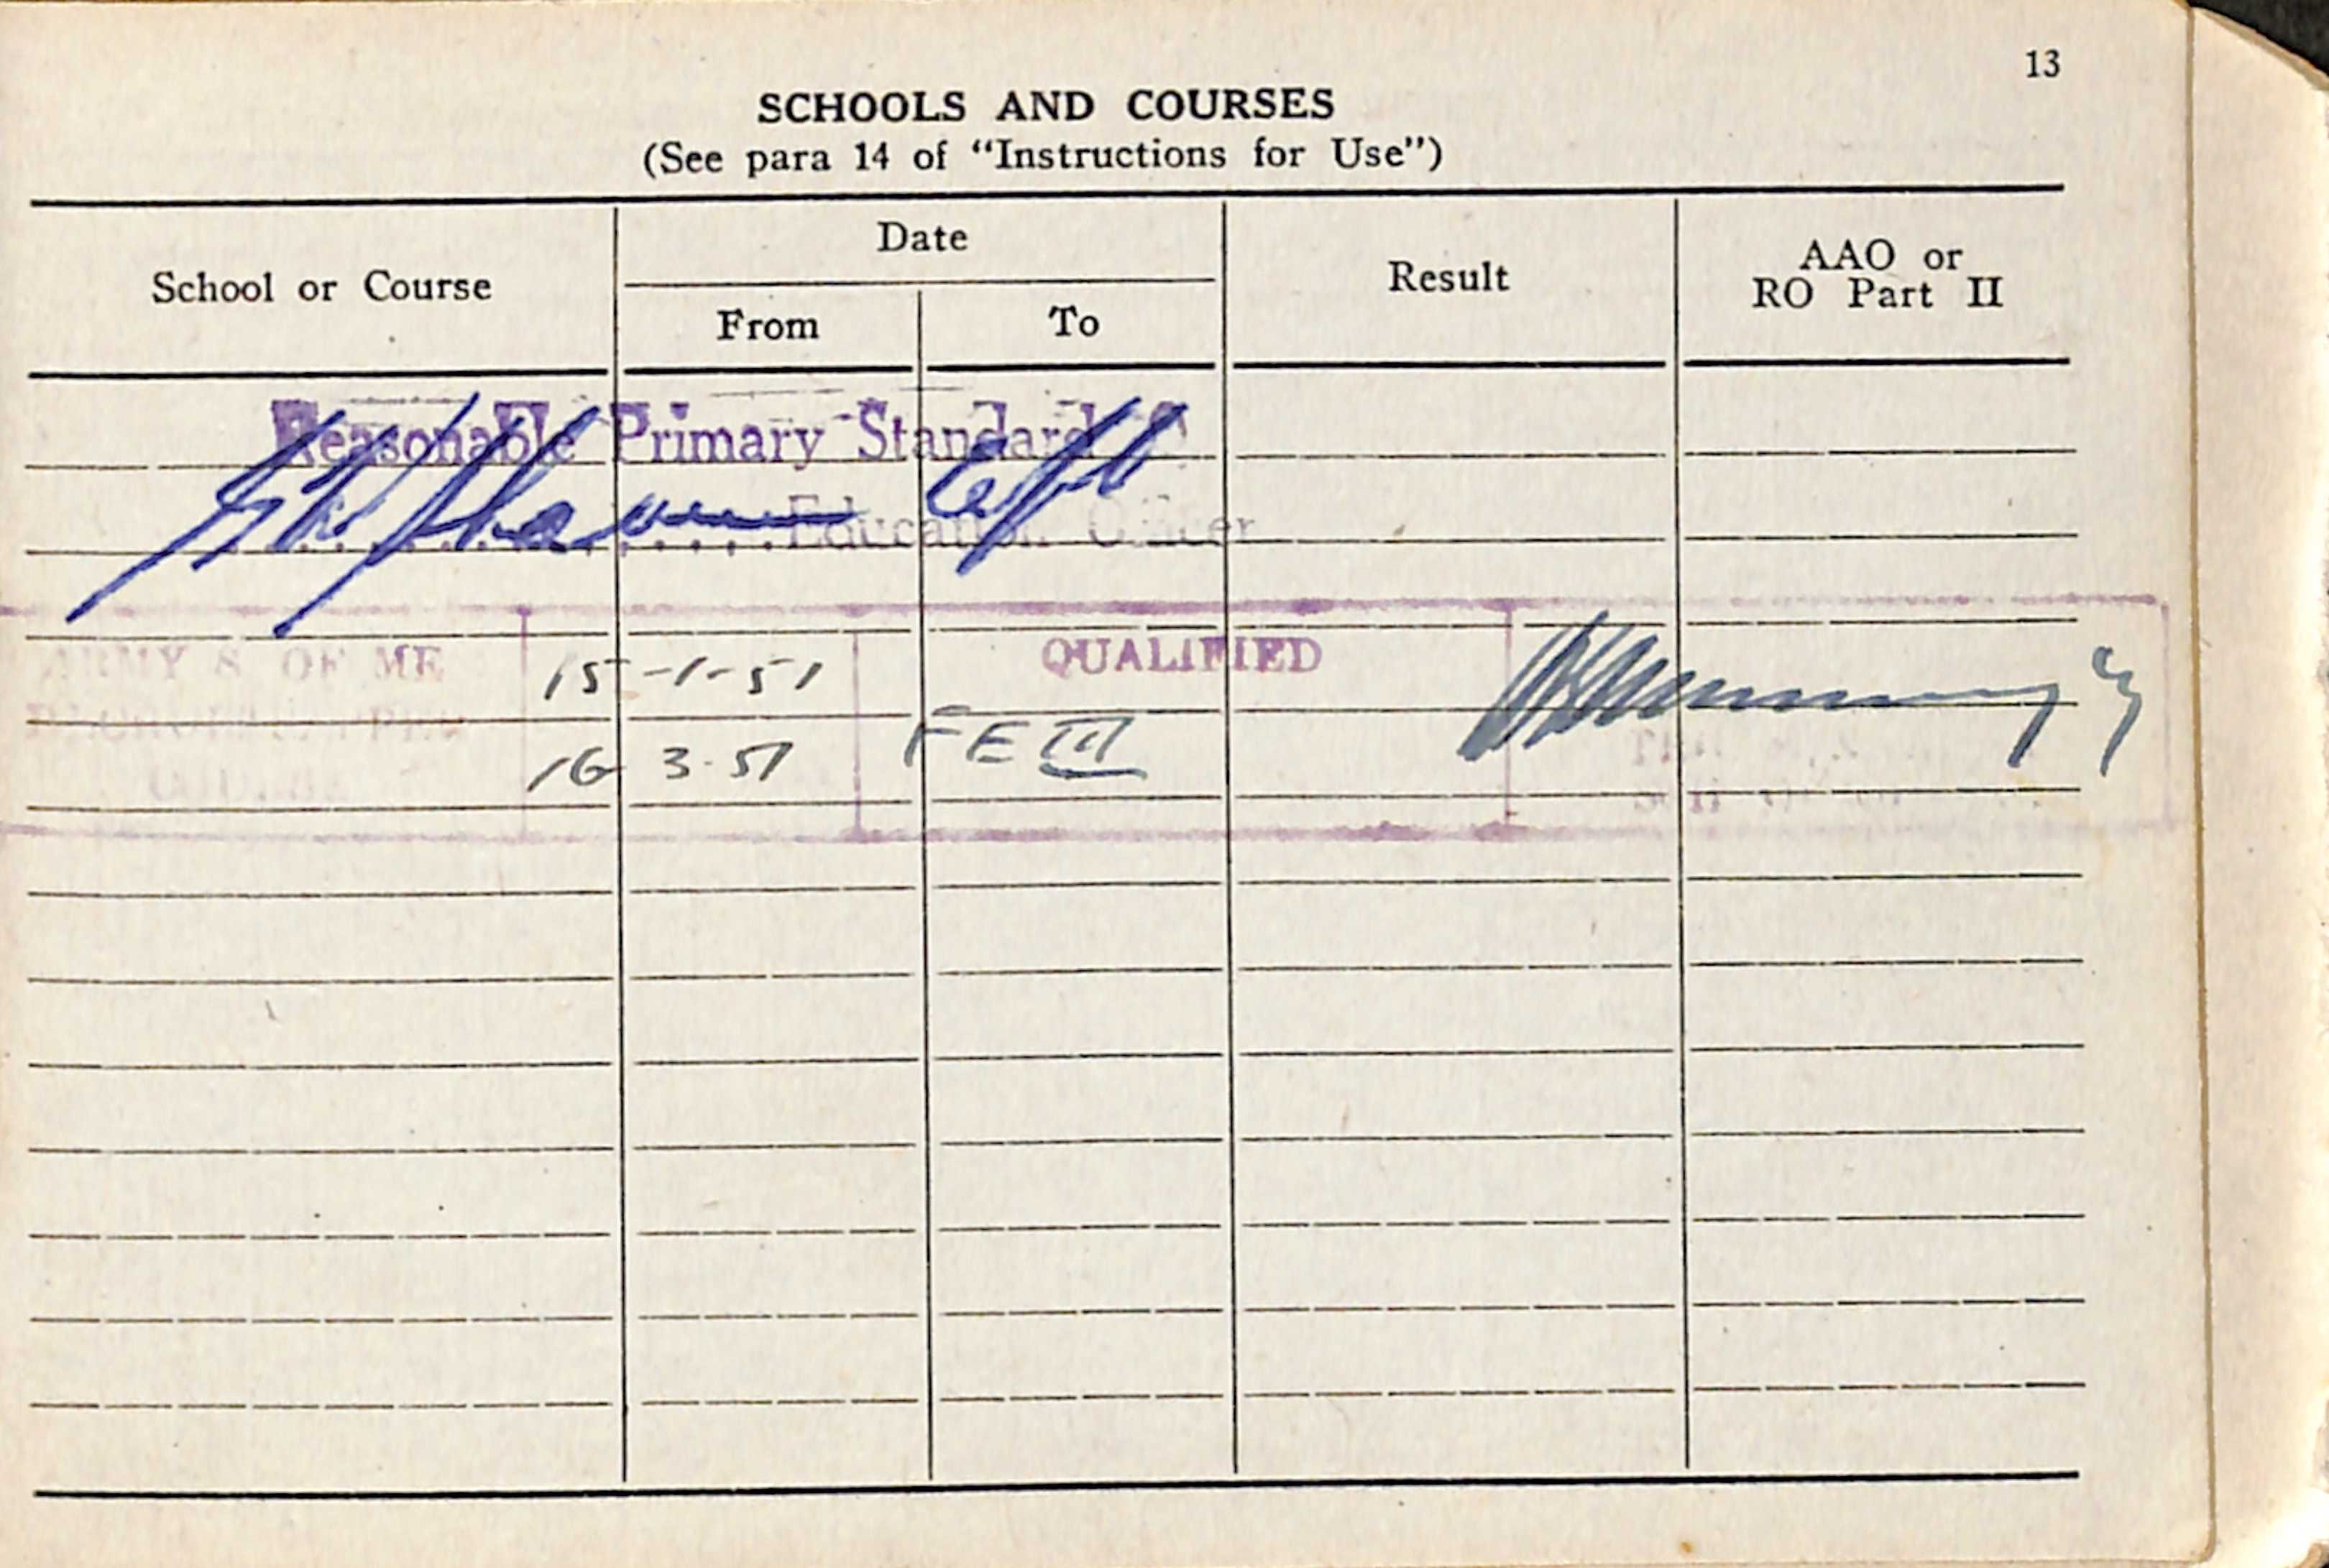 13
SCHOOLS AND COURSES
(See para 14 of "Instructions for Use")
School or Course
Date
From
To
Result
AAO or
RO Part II
Reasonable Primary Standard
Education Officer
ARMY S OF ME
QUALIFIED
15-1-51
16 3-51
FE III